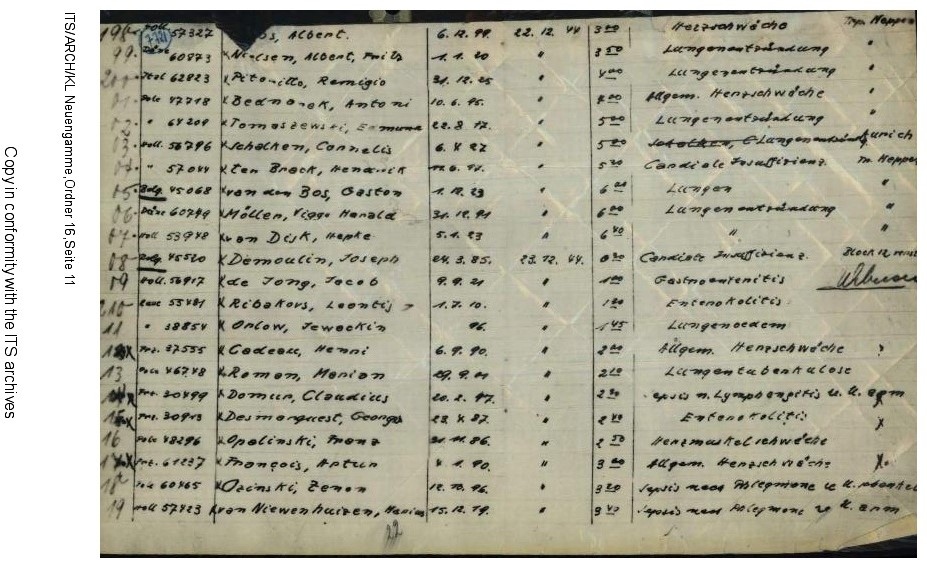 ITS/ARCH/KL Neuengamme,Ordner 16,Seite 11
Copy in conformity with the ITS archives
198 Holl 57327 Albert. 6.12.99. 22.12.44 3 00 Herzschwäche Meppen
99 Däne 60873 Nielsen, Albert, Fritz 1.1.20 " 3 50 Lungenentzündung "
200 62823 Remigio 31.12.25 " 4 00 Lungenentzündung "
01 Pole 47718 Bednarek, Antoni 10.6.95. " Allgem. Herzschwäche "
02 " 64209 Tomaszewski, Edmund 22.8.17. " 5 00 Lungenentzündung "
03 Holl. 56796 Schalken, Cornelis 6.4.27 " 5 20 Lungenentzündung Aurich
04 " 57044 ten Brock, Hendrick " 5 30 Cardiale Insuffizienz. Meppen
05 Belg. 45068 van den Bos, Gaston 1.12.23 " 6 00 Lungen "
06 Däne 60749 Möller, Viggo Harald 31.12.91 " 6 00 Lungenentzündung "
07 Holl 53948 van Disk, Hepke 5.1.23 " 6 40 " "
08 Belg. 45520 Demoulin, Joseph 24.3.85. 23.12.44. 0 30 Cardiale Insuffizienz. Block 12
09 Holl. 56917 de Jong, Jacob 9.9.21 " 1 00 Gastroenteritis
210 55481 Ribakovs, Leontis 1.7.10. " 1 30 Enterokolitis
11 " 38854 Orlow, Jewockin 96. " 1 45 Lungenoedem
12 Frz. 37555 Cadeau, Henri 6.9.90. " 2 00 Allgem. Herzschwäche
13 46748 Roman, Marian 29.9.01 " 2 10 Lungentuberkulose
14 Frz. 30499 Domur, Claudius 20.2.97. " 2 30 Sepsis n. Lymphangitis arm
15 Frz. 30943 Desmarquest, Georges 23.4.87. " 2 40 Enterokolitis x
16 Pole 48296 Opalinski, Franz 86. " 2 50 Herzmuskelschwäche
17 Frz. 61237 François, Artur 4.1.90. " 3 00 Allgem. Herzschwäche x
18 Pole 60465 Ozinski, Zenon 12.10.96. " 3 20 Sepsis nach Phlegmone
19 Holl 57423 van Niewenhuizen, 15.12.19. " 3 40 Sepsis nach Phlegmone arm
22